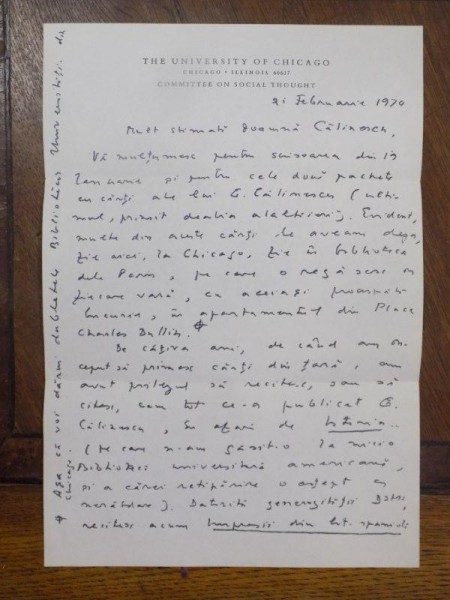 THE UNIVERSITY OF CHICAGO
CHICAGO • ILLINOIS 60637
COMMITTEE ON SOCIAL THOUGHT
21 Februarie 1970
Mult stimată Doamnă Călinescu,
Vă mulțumesc pentru scrisoarea din 19
Ianuarie și pentru cele două pachete
cu cărți ale lui G. Călinescu (ulti-
mul, primit deabia alaltăieri). Evident,
multe din aceste cărți le aveam deja,
fie aici, la Chicago, fie în biblioteca
dela Paris, pe care o regăsesc în
fiecare vară, cu aceiași proaspătă
bucurie, în apartamentul din Place
Charles Dullin.
De câțiva ani, de când am în-
ceput să primesc cărți din țară, am
avut prilejul să recitesc, sau să
citesc, cam tot ce-a publicat G.
Călinescu, în afară de Istoria..
(pe care n-am găsit-o la nicio
Bibliotecă universitară americană,
și a cărei retipărire o aștept cu
nerăbdare). Datorită generozității Dstră,
recitesc acum Impresii din lit. spaniolă
Așa că voi dărui dubletele Bibliotecii Universității din
Chicago.